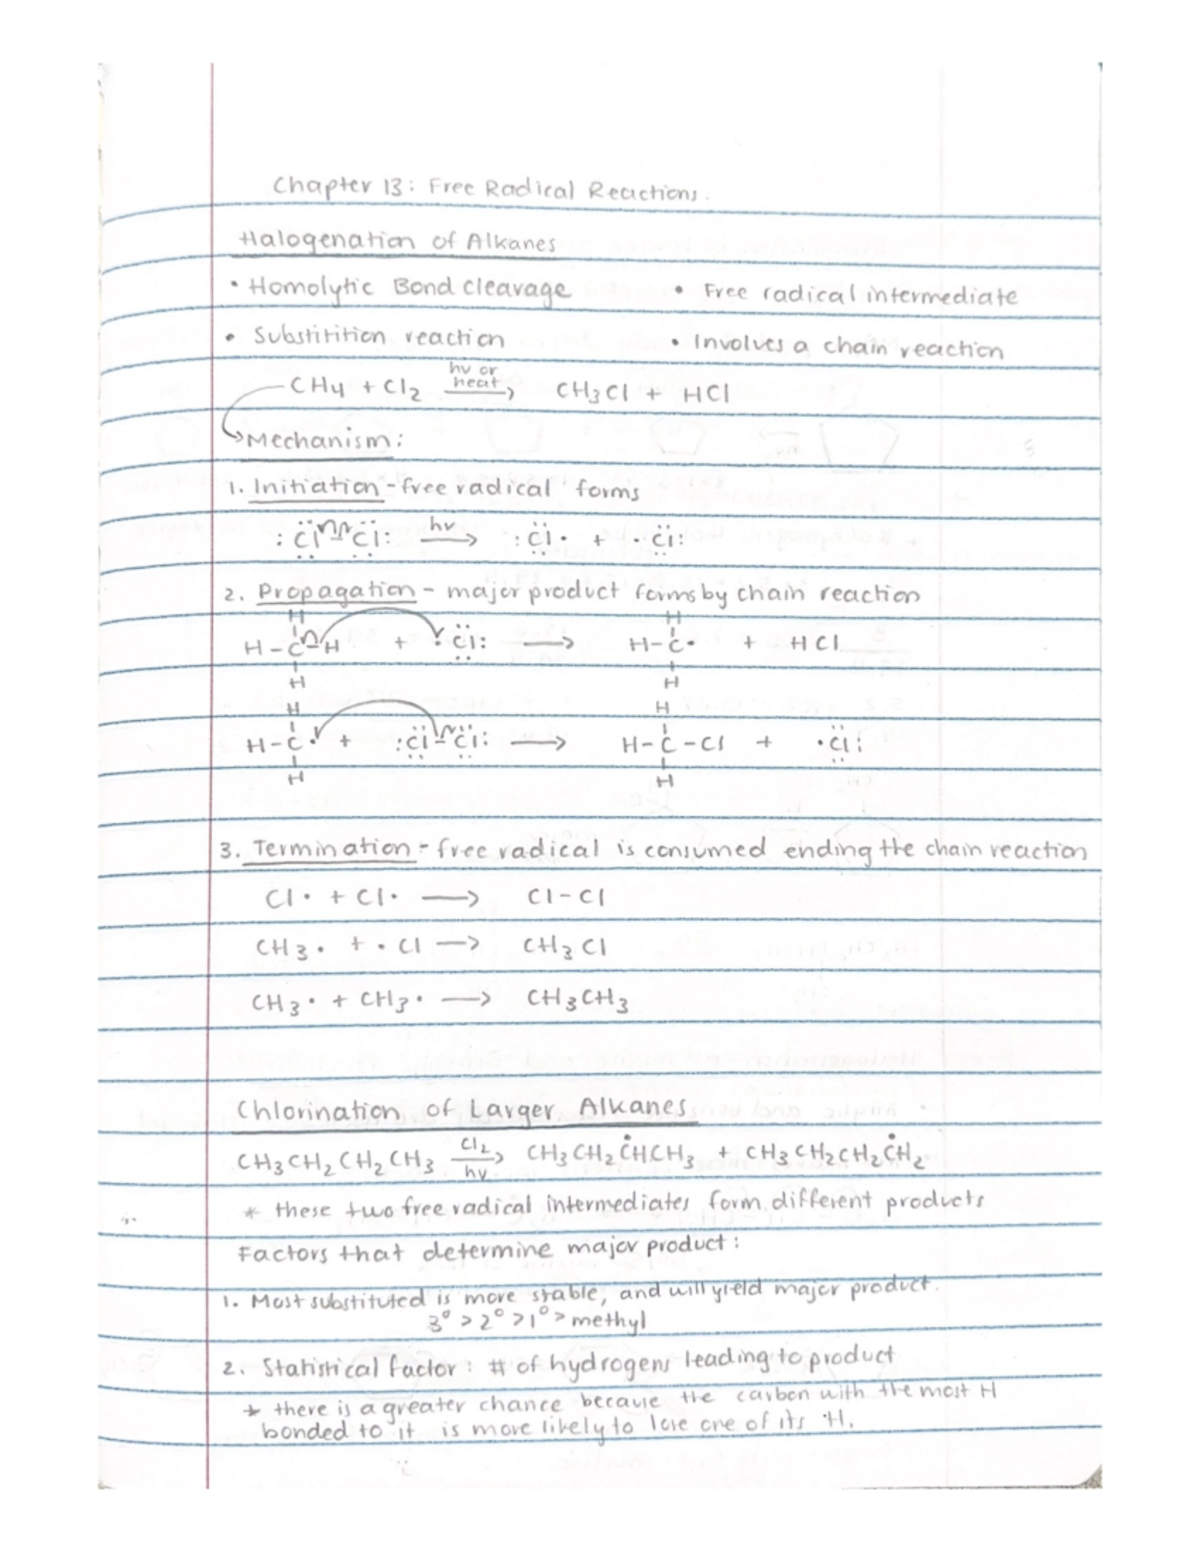 Chapter 13: Free Radical Reactions.
Halogenation of Alkanes
• Homolytic Bond cleavage • Free radical intermediate
• Substitition reaction • Involves a chain reaction
CH4 + Cl2 hv or heat → CH3Cl + HCl
→ Mechanism:
1. Initiation - free radical forms
:Cl-Cl: hv → :Cl• + •Cl:
2. Propagation - major product forms by chain reaction
H
H-C-H + •Cl: → H-C• + HCl
H
H
H-C• + :Cl-Cl: → H-C-Cl + •Cl:
H
3. Termination - free radical is consumed ending the chain reaction
Cl• + Cl• → Cl-Cl
CH3• + •Cl → CH3Cl
CH3• + CH3• → CH3CH3
Chlorination of Larger Alkanes
CH3CH2CH2CH3 Cl2 hv → CH3CH2ĊHCH3 + CH3CH2CH2ĊH2
* these two free radical intermediates form different products
Factors that determine major product:
1. Most substituted is more stable, and will yield major product.
3° > 2° > 1° > methyl
2. Statistical factor: # of hydrogens leading to product
* there is a greater chance because the carbon with the most H
bonded to it is more likely to lose one of its H.